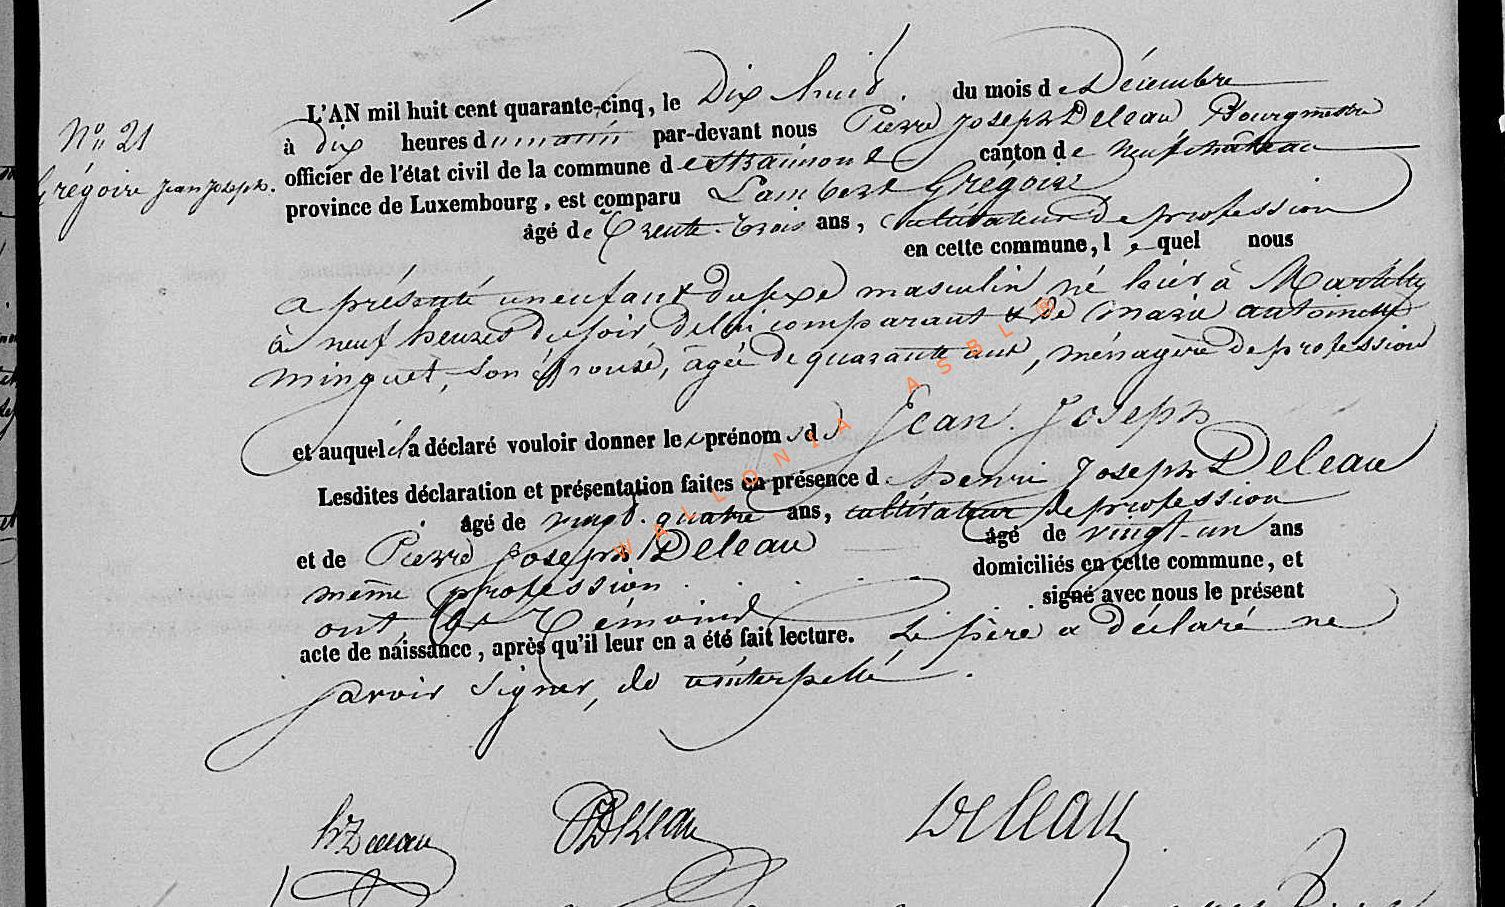 L'AN mil huit cent quarante-cinq, le Dix huit du mois de Décembre
N° 21
à dix heures du matin par-devant nous Pierre Joseph Deleau Bourgmestre
Grégoire Jean Joseph.
officier de l'état civil de la commune de Straimont canton de neufchâteau
province de Luxembourg, est comparu Lambert Grégoire
âgé de Trente-trois ans, cultivateur de profession
en cette commune, lequel nous
a présenté un enfant du sexe masculin, né hier à Martilly
à neuf heures du soir de lui comparant & de Marie antoinette
minguet, son épouse, âgée de quarante ans, ménagère de profession
et auquel il a déclaré vouloir donner les prénoms de Jean Joseph
Lesdites déclaration et présentation faites en présence de henri Joseph Deleau
âgé de vingt-quatre ans, cultivateur de profession
et de Pierre Joseph Deleau âgé de vingt-un ans
même profession. domiciliés en cette commune, et
ont les Témoins signé avec nous le présent
acte de naissance, après qu'il leur en a été fait lecture. Le père a déclaré ne
savoir signer, de interpellé.
hJ Deleau PJ Deleau Deleau
WALLONIA ASBL ®